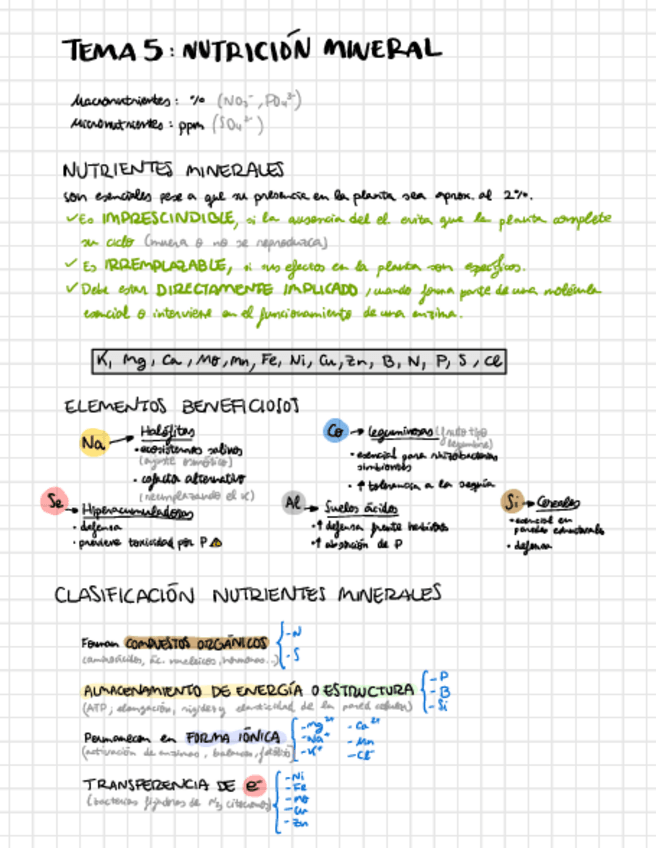 TEMA 5: NUTRICIÓN MINERAL
Macronutrientes: % (NO₃⁻, PO₄³⁻)
Micronutrientes: ppm (SO₄²⁻)
NUTRIENTES MINERALES
Son esenciales pese a que su presencia en la planta sea aprox. al 2%.
✓ Es IMPRESCINDIBLE, si la ausencia del el. evita que la planta complete
su ciclo (muera o no se reproduzca)
✓ Es IRREMPLAZABLE, si sus efectos en la planta son específicos.
✓ Debe estar DIRECTAMENTE IMPLICADO, cuando forma parte de una molécula
esencial o interviene en el funcionamiento de una enzima.
K, Mg, Ca, Mo, Mn, Fe, Ni, Cu, Zn, B, N, P, S, Cl
ELEMENTOS BENEFICIOSOS
Na → Halófitas
• ecosistemas salinos
(ajuste osmótico)
• cofactor alternativo
(reemplazando el K)
Co → Leguminosas (fruto tipo
legumbre)
• esencial para rhizobacterias
simbiontes
• ↑ tolerancia a la sequía
Se → Hiperacumuladoras
• defensa
• previene toxicidad por P ⚠
Al → Suelos ácidos
• ↑ defensa frente
• ↑ absorción de P
Si → Cereales
• esencial en
paredes
• defensa
CLASIFICACIÓN NUTRIENTES MINERALES
Forman COMPUESTOS ORGÁNICOS
(aminoácidos, ác. nucleicos, hormonas..)
- N
- S
ALMACENAMIENTO DE ENERGÍA O ESTRUCTURA
(ATP; elongación, rigidez y elasticidad de la pared celular)
- P
- B
- Si
Permanecen en FORMA IÓNICA
(activación de enzimas, balance,
- Mg²⁺ - Ca²⁺
- Na⁺ - Mn
- K⁺ - Cl⁻
TRANSFERENCIA DE e⁻
(bacterias fijadoras de N₂, citocromos)
- Ni
- Fe
- Mo
- Cu
- Zn